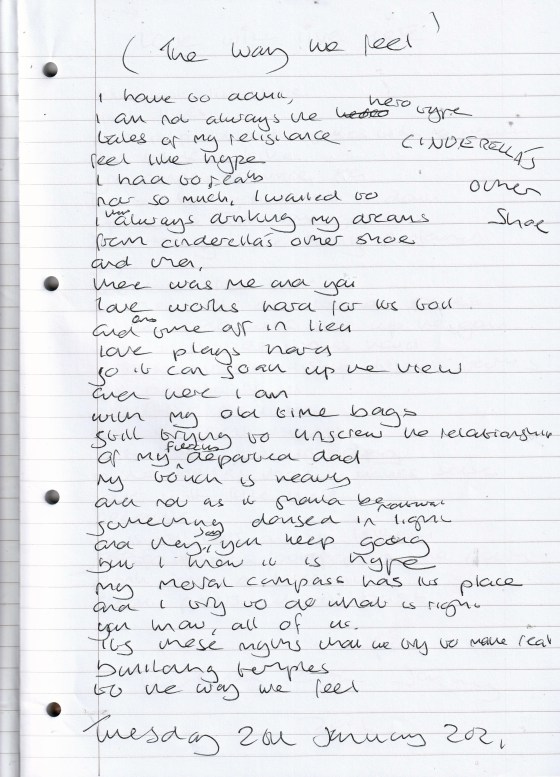 (The way we feel)
I have to admit,
I am not always the hero type
tales of my resistance
CINDERELLA'S
feel like hype
I had to, really
not so much, I wanted to
other
I was always drinking my dreams
Shoe
from cinderella's other shoe
and then,
there was me and you
love works hard for its toil
and time off in lieu
love plays hard
so it can soak up the view
and here I am
with my old time bags
still trying to unscrew the relationship
of my departed dad
my touch is heavy
and not as it should be
something doused in light
and they say, you keep going
but I know it is hype
my moral compass has its place
and I try to do what is right
you know, all of us.
It's these myths that we try to make real
building temples
to the way we feel
Tuesday January